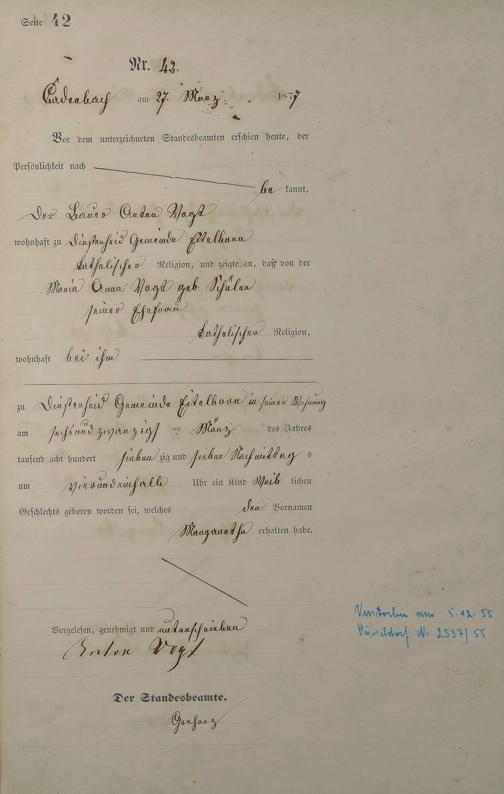 Seite 42
Nr. 42.
Cadenbach am 27. März 1877
Vor dem unterzeichneten Standesbeamten erschien heute, der
Persönlichkeit nach
be kannt,
Der Bauer Anton Vogt
wohnhaft zu Dienstenheid Gemeinde Eitelborn
katholischer Religion, und zeigte an, daß von der
Maria Anna Vogt geb. Schüler
seiner Ehefrau
katholischer Religion,
wohnhaft bei ihm
zu Dienstenheid Gemeinde Eitelborn in seiner Wohnung
am sechsundzwanzigst en März des Jahres
tausend acht hundert sieben zig und sieben Nachmittag s
um vierundeinhalb Uhr ein Kind Weib lichen
Geschlechts geboren worden sei, welches den Vornamen
Margaretha erhalten habe.
Vorgelesen, genehmigt und unterschrieben
Anton Vogt
Der Standesbeamte.
Gerharz
Verstorben am 5.12.55
Düsseldorf Nr. 2537/55